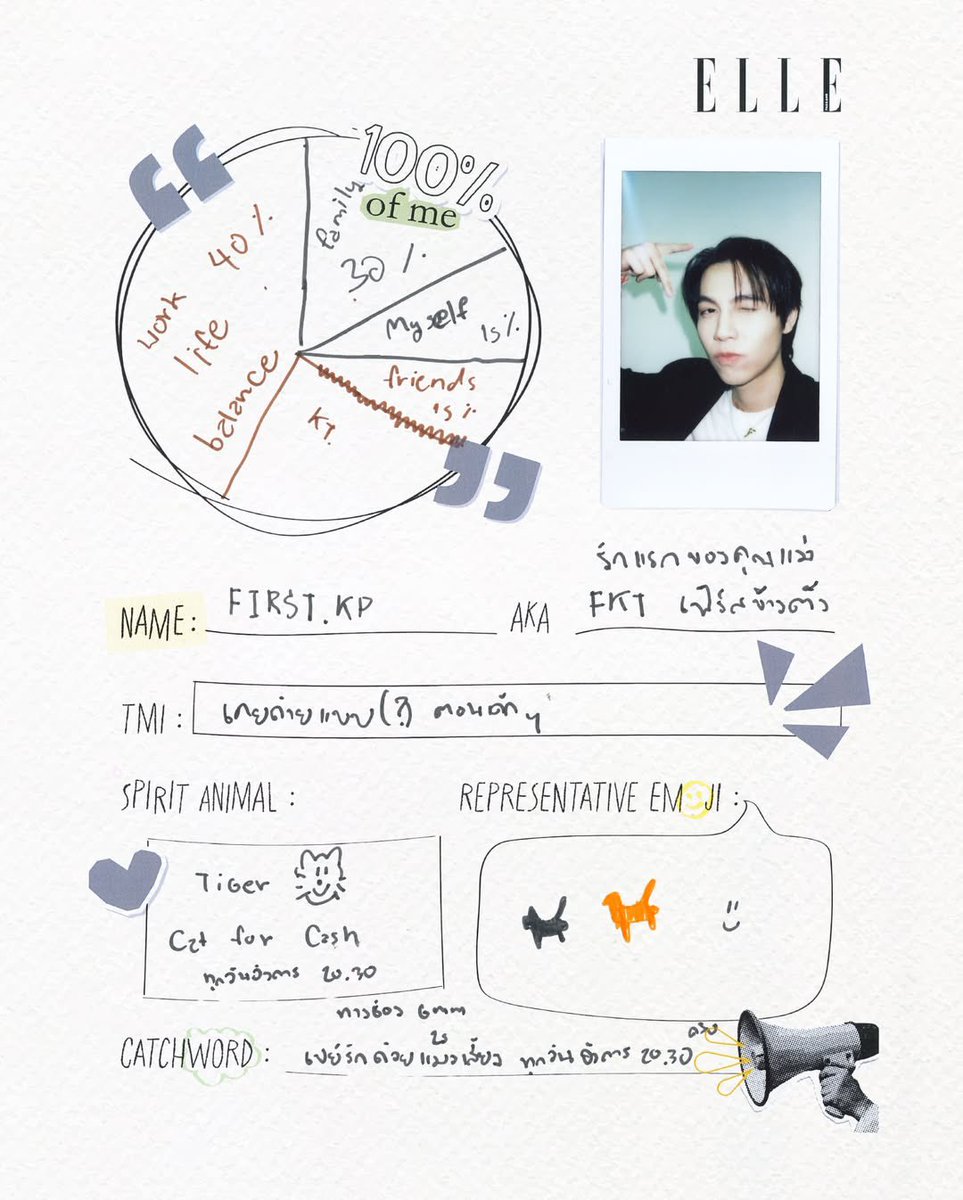 ELLE
100%
of me
family
30 %
work
life
balance
40 %
Myself
15%
friends
15%
KT.
NAME: FIRST.KP
รักแรกของคุณแม่
AKA FKT เฟิร์สข้าวตัง
TMI : เคยถ่ายแบบ(?) ตอนเด็กๆ
SPIRIT ANIMAL :
Tiger
Cat for Cash
ทุกวันอังคาร 20.30
REPRESENTATIVE EMOJI :
ทางช่อง GMM
25
CATCHWORD : เปย์รักด้วยแมวเลี้ยง ทุกวันอังคาร 20.30 ครับ